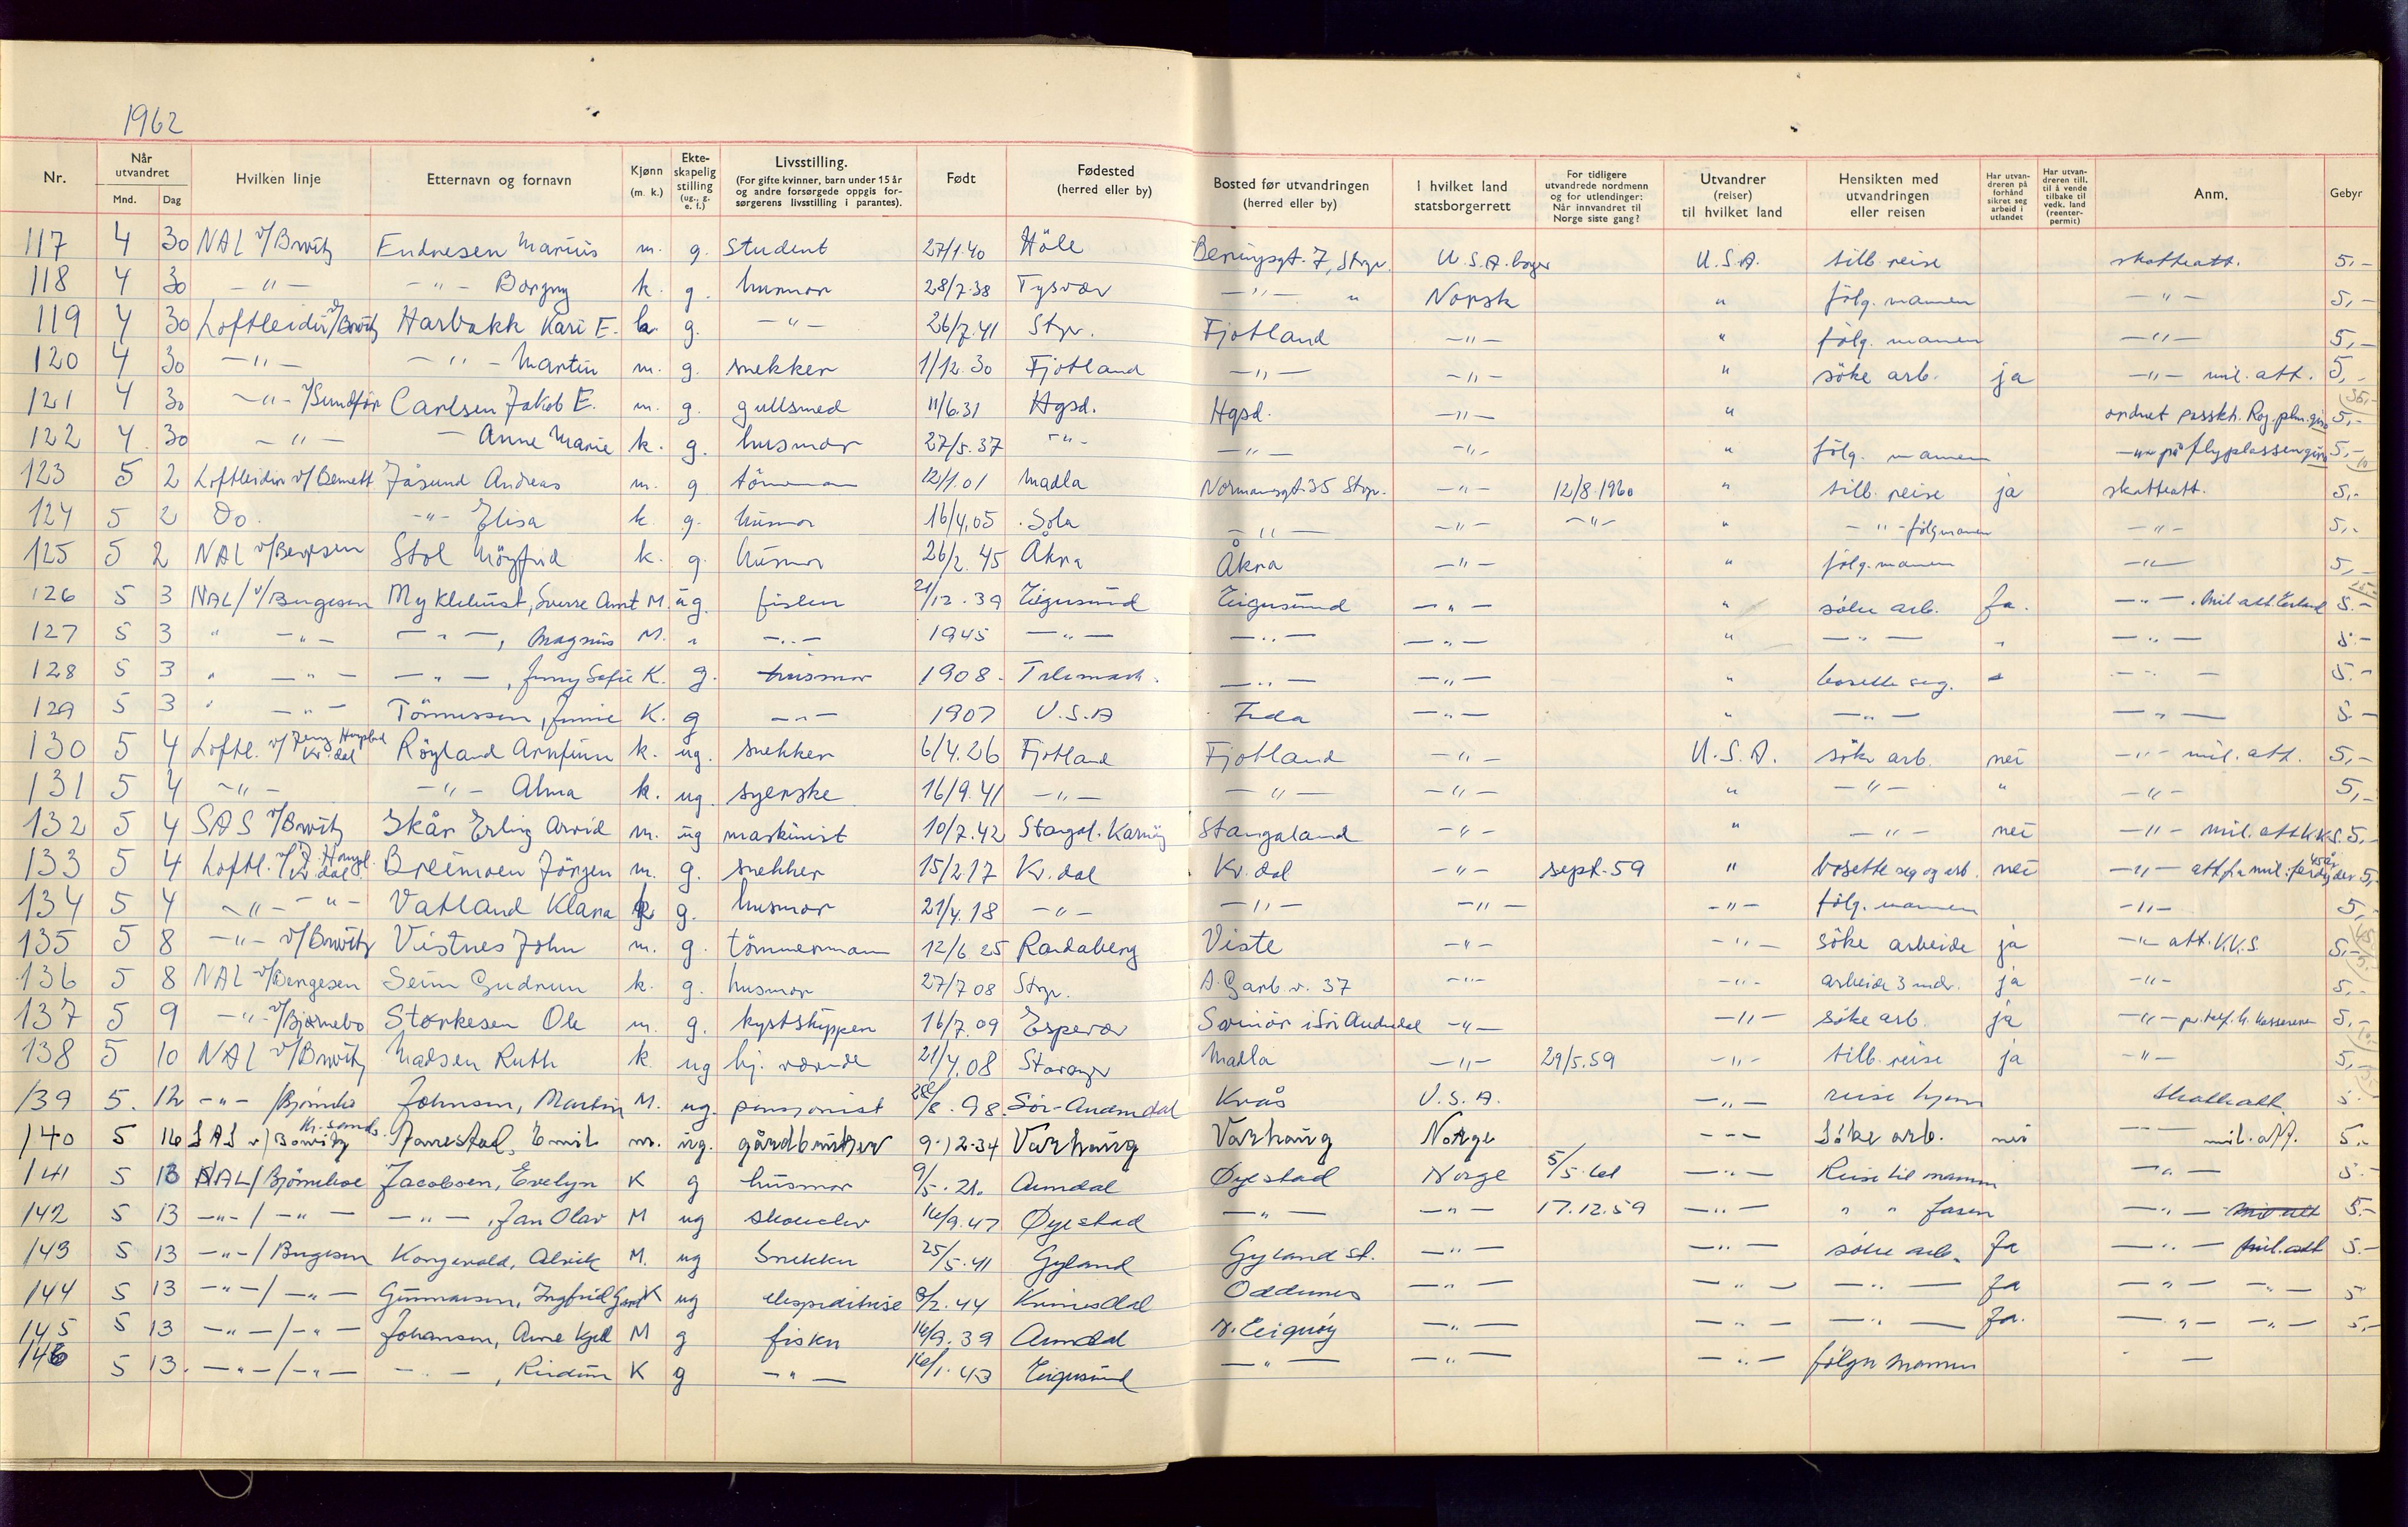 1962
Nr. Når utvandret Mnd. Dag Hvilken linje Etternavn og fornavn Kjønn (m. k.) Ekteskapelig stilling (ug., g. e. f.) Livsstilling. (For gifte kvinner, barn under 15 år og andre forsørgede oppgis forsørgerens livsstilling i parantes). Født Fødested (herred eller by) Bosted før utvandringen (herred eller by) I hvilket land statsborgerrett For tidligere utvandrede nordmenn og for utlendinger: Når innvandret til Norge siste gang? Utvandrer (reiser) til hvilket land Hensikten med utvandringen eller reisen Har utvandreren på forhånd sikret seg arbeid i utlandet Har utvandreren till. til å vende tilbake til vedk. land (reenterpermit) Anm. Gebyr
117 4 30 NAL v/Brwitz Endresen Marius m. g. Student 27/1.40 Höle 7, Stvgr. U.S.A. borger U.S.A. tilb. reise skatteatt. 5,-
118 4 30 -"- -"- Borgny k. g. husmor 28/7.38 Tysvær -"- " Norsk " følg. mannen -"- 5,-
119 4 30 Loftleidir v/Brwitz Harbakk Kari E. k. g. -"- 26/7.41 Stvgr. Fjotland -"- " følg. mannen -"- 5,-
120 4 30 -"- -"- Martin m. g. snekker 1/12.30 Fjotland -"- -"- " söke arb. ja -"- mil. att. 5,-
121 4 30 -"- v/Sundför Carlsen Jakob E. m. g. gullsmed 11/6.31 Hgsd. Hgsd. -"- " ordnet passktr. 5,-
122 4 30 -"- - Anne Marie k. g. husmor 27/5.37 -"- -"- -"- " følg. mannen -"- på flyplassen 5,-
123 5 2 Loftleidir v/Bennett Jåsund Andreas m. g 12/1.01 Madla Normannsgt. 35 Stvgr. -"- 12/8.1960 " tilb. reise ja skatteatt. 5,-
124 5 2 Do. -"- Elisa k. g. husmor 16/4.05 Sola -"- -"- -"- " -"- følg mannen -"- 5,-
125 5 2 NAL v/Bergesen Stol k. g. husmor 26/2.45 Åkra Åkra -"- " følg. mannen -"- 5,-
126 5 3 NAL/v/Bergesen Myklebust, Sverre Arnt M. ug. fisker 21/12.39 Eigersund Eigersund -"- " søke arb. Ja. -"- . Mil att. 5.-
127 5 3 " -"- -"-, Magnus M. " -"- 1945 -"- -"- -"- " -"- " -"- 5.-
128 5 3 " -"- -"-, Jenny Sofie K. g. husmor 1908. Telemark. -"- -"- " bosette seg. -"- 5.-
129 5 3 " -"- Tönnessen, K. g -"- 1907 U.S.A -"- " -"- -"- 5.-
130 5 4 Loftl. v/ Kv.dal Röyland Arnfinn k. ug. snekker 6/4.26 Fjotland Fjotland -"- U.S.A. söke arb. nei -"- mil. att. 5,-
131 5 4 -"- -"- Alma k. ug. syerske 16/9.41 -"- -"- -"- " -"- " -"- 5,-
132 5 4 SAS v/Brwitz Skår Erling Arvid m. ug maskinist 10/7.42 Stangal. Karmöy Stangaland -"- " -"- nei -"- mil. att K.K.S. 5,-
133 5 4 Loftl. v/ Kv.dal Breimoen Jörgen m. g. snekker 15/2.17 Kv.dal Kv.dal -"- sept.59 " bosette seg og arb. nei -"- att fra mil. 45 år 5,-
134 5 4 -"- -"- Vatland Klara k g. husmor 21/4.18 -"- -"- -"- -"- følg. mannen -"- 5,-
135 5 8 -"- v/Brwitz Vistnes John m. g. tömmermann 12/6 25 Randaberg Viste -"- -"- söke arbeide ja -"- att. V.V.S. 5,-
136 5 8 NAL v/Bergesen Seim Gudrun k. g. husmor 27/7 08 Stvgr. A. Garb. v. 37 -"- -"- arbeide 3 mdr. ja -"- 5,-
137 5 9 -"- v/Bjørnebo Storkesen Ole m. g. kystskipper 16/7.09 Espevær -"- -"- söke arb. ja -"- pr. telf. 5,-
138 5 10 NAL v/Brwitz Madsen Ruth k. ug hj. værende 21/4.08 Stavanger Madla -"- 29/5.59 -"- tilb. reise ja -"- 5,-
139 5. 12 -"- /Bjørnebo Johnsen, Martin M. ug. pensjonist 28/8.98. Sör-Audnedal Kvås U.S.A. -"- reise hjem skatteatt. 5.-
140 5 16 SAS v/Bowitz Kr.sand. Tanestad, Emil m. ug. gårdbruker 9.12.34 Varhaug Varhaug Norge -"- Söke arb. nei -"- mil. att. 5.-
141 5 13 NAL/Bjørnebo Jacobsen, Evelyn K g husmor 9/5.21. Arendal Øyestad Norge 5/5.61 -"- Reise til mannen -"- 5.-
142 5 13 -"-/-"- -"-, Jan Olav M ug skoleelev 16/9.47 Øyestad -"- -"- 17.12.59 -"- " " faren -"- mil att 5.-
143 5 13 -"-/Bergesen Kongevold, Alrik M. ug Snekker 25/5.41 Gyland Gyland st. -"- -"- søke arb. Ja -"- mil. att 5.-
144 5 13 -"-/-"- Gunnarsen, Ingfrid K ug ekspeditrise 8/2.44 Kvinesdal Oddernes -"- -"- -"- Ja -"- -"- 5
145 5 13 -"-/-"- Johansen, Arne Kjell M g fisker 16/9.39 Arendal N. Eigeröy -"- -"- -"- Ja. -"- -"- 5,-
146 5 13. -"-/-"- -"-, Reidun K g -"- 16/1.43 Eigersund -"- -"- -"- følger mannen -